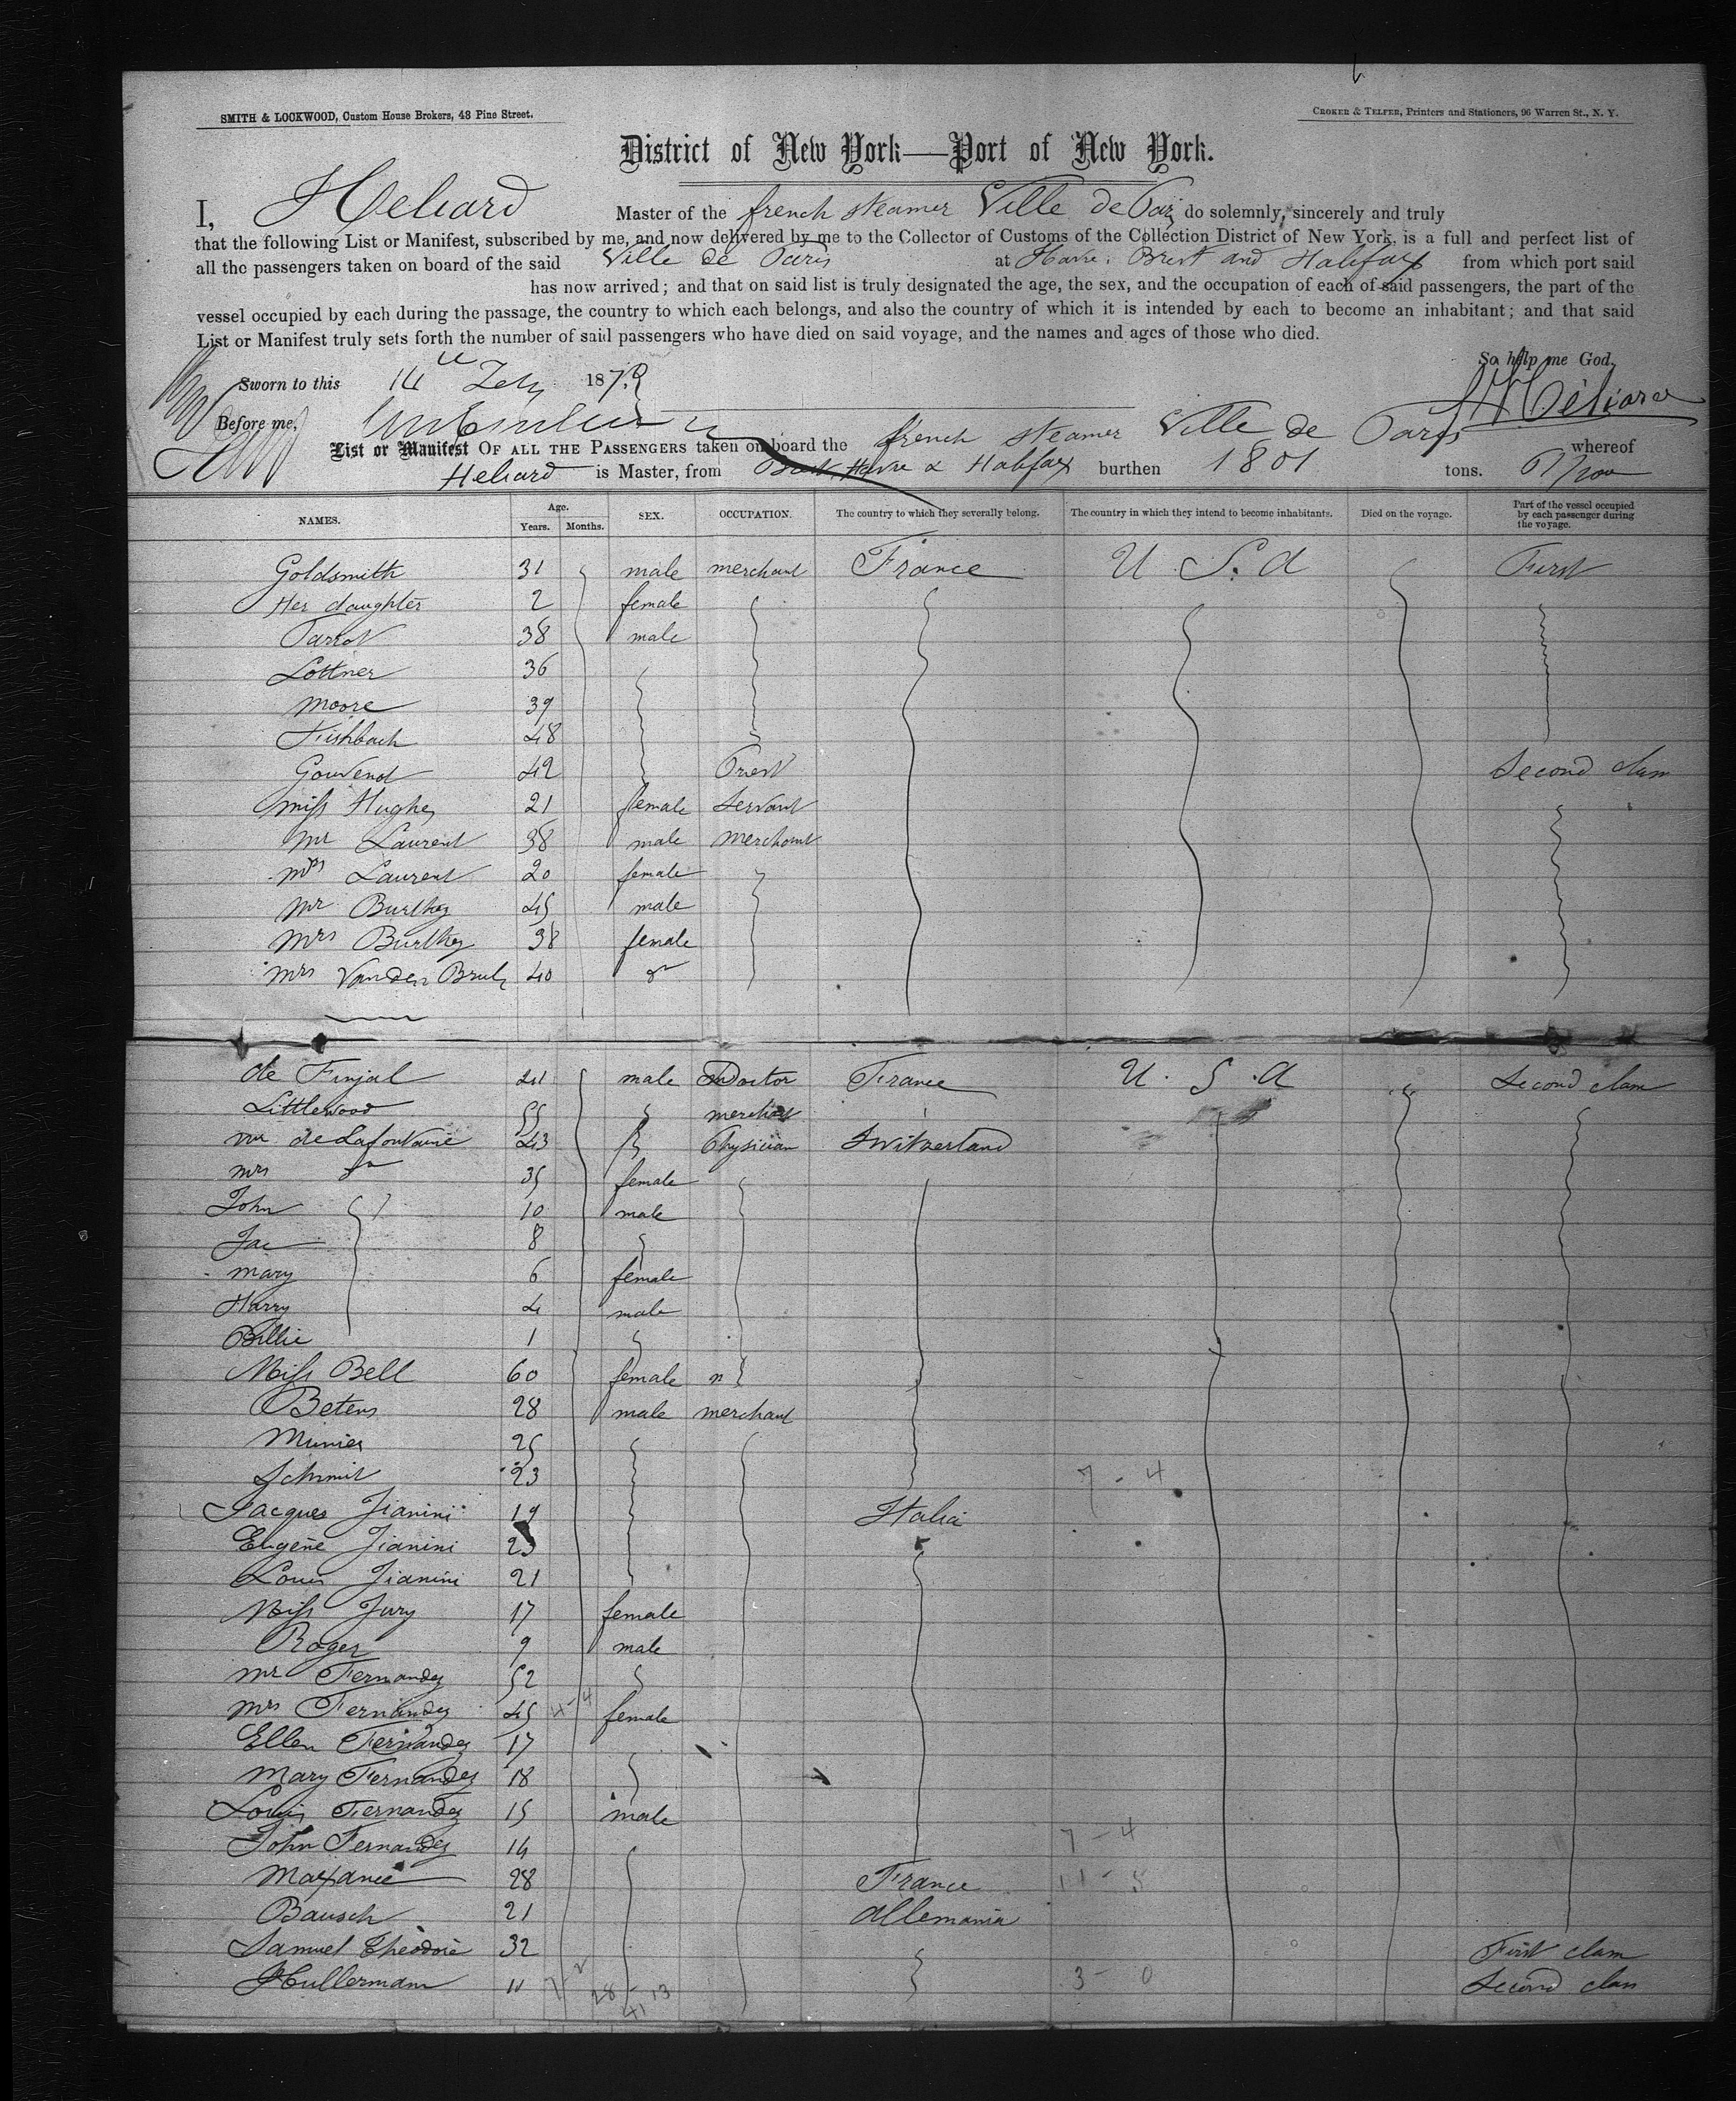 SMITH & LOCKWOOD, Custom House Brokers, 48 Pine Street.
CROKER & TELFER, Printers and Stationers, 96 Warren St., N. Y.
District of New York—Port of New York.
I, Heliard Master of the french steamer Ville de Paris do solemnly, sincerely and truly
that the following List or Manifest, subscribed by me, and now delivered by me to the Collector of Customs of the Collection District of New York, is a full and perfect list of
all the passengers taken on board of the said Ville de Paris at Havre, Brest and Halifax from which port said
has now arrived; and that on said list is truly designated the age, the sex, and the occupation of each of said passengers, the part of the
vessel occupied by each during the passage, the country to which each belongs, and also the country of which it is intended by each to become an inhabitant; and that said
List or Manifest truly sets forth the number of said passengers who have died on said voyage, and the names and ages of those who died.
So help me God.
Sworn to this 14 187
Heliard
Before me,
List or Manifest OF ALL THE PASSENGERS taken on board the french steamer Ville de Paris whereof
Heliard is Master, from Brest, Havre & Halifax burthen 1801 tons.
NAMES. Age. Years. Months. SEX. OCCUPATION. The country to which they severally belong. The country in which they intend to become inhabitants. Died on the voyage. Part of the vessel occupied by each passenger during the voyage.
Goldsmith 31 male merchant France U.S.A First
Her daughter 2 female
38 male
Lottner 36
Moore 39
Fishbach 48
42 Priest Second class
Miss Hughes 21 female Servant
Mr Laurent 38 male Merchant
Mrs Laurent 20 female
Mr Burthey 45 male
Mrs Burthey 38 female
Mrs Vanden 40 do
de Finjal 41 male Doctor France U.S.A Second class
Littlewood 55 merchant
mr de Lafontaine 43 Physician Switzerland
mrs do 35 female
John 10 male
Jac 8
mary 6 female
Harry 4 male
Billie 1
Miss Bell 60 female n
Betens 28 male merchant
Munier 25
Schmit 23
7 - 4
Jacques Jianini 19 Italia
Eugène Jianini 23
Louis Jianini 21
Miss Jury 17 female
Roger 9 male
mr Fernandez 52
mrs Fernandez 45 female
Ellen Fernandez 17
Mary Fernandez 18
Louis Fernandez 15 male
John Fernandez 14 7 - 4
28 France
Bausch 21 Allemania
Samuel Theodore 32 First class
Hullermann 11 3 - 0 Second class